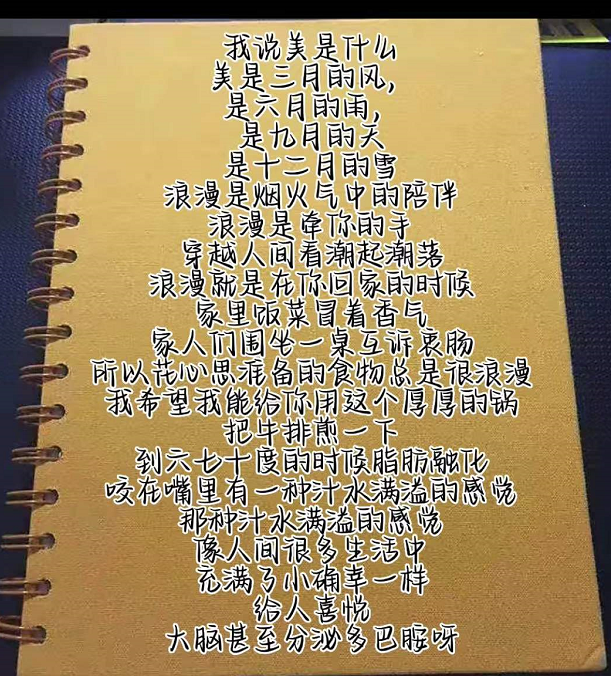 我说美是什么
美是三月的风,
是六月的雨,
是九月的天
是十二月的雪
浪漫是烟火气中的陪伴
浪漫是牵你的手
穿越人间看潮起潮落
浪漫就是在你回家的时候
家里饭菜冒着香气
家人们围坐一桌互诉衷肠
所以花心思准备的食物总是很浪漫
我希望我能给你用这个厚厚的锅
把牛排煎一下
到六七十度的时候脂肪融化
咬在嘴里有一种汁水满溢的感觉
那种汁水满溢的感觉
像人间很多生活中
充满了小确幸一样
给人喜悦
大脑甚至分泌多巴胺呀